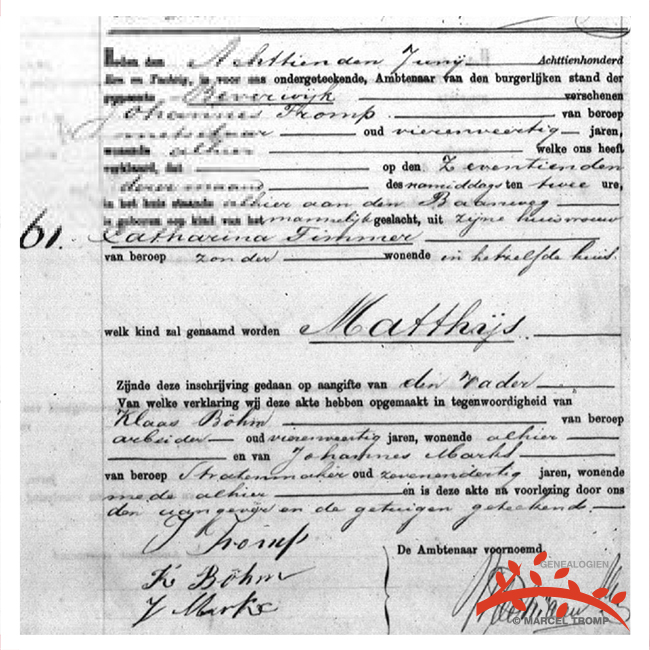 Heden den Achttienden Junij Achttienhonderd
Een en Tachtig, is voor ons ondergeteekende, Ambtenaar van den burgerlijken stand der
gemeente Beverwijk verschenen
Johannes Tromp van beroep
metselaar oud vierenveertig jaren,
wonende alhier welke ons heeft
verklaard, dat op den Zeventienden
dezer maand des namiddags ten twee ure,
in het huis staande alhier aan den Baanweg
is geboren een kind van het mannelijk geslacht, uit zijne huisvrouw
61. Catharina Timmer
van beroep zonder wonende in hetzelfde huis.
welk kind zal genaamd worden Matthijs.
Zijnde deze inschrijving gedaan op aangifte van den Vader
Van welke verklaring wij deze akte hebben opgemaakt in tegenwoordigheid van
Klaas Böhm van beroep
arbeider oud vierenveertig jaren, wonende alhier
en van Johannes Marks
van beroep Stratenmaker oud zevenendertig jaren, wonende
mede alhier en is deze akte na voorlezing door ons
den aangever en de getuigen geteekend.
J Tromp
De Ambtenaar voornoemd,
K Böhm
J Marks
GENEALOGIEN
© MARCEL TROMP